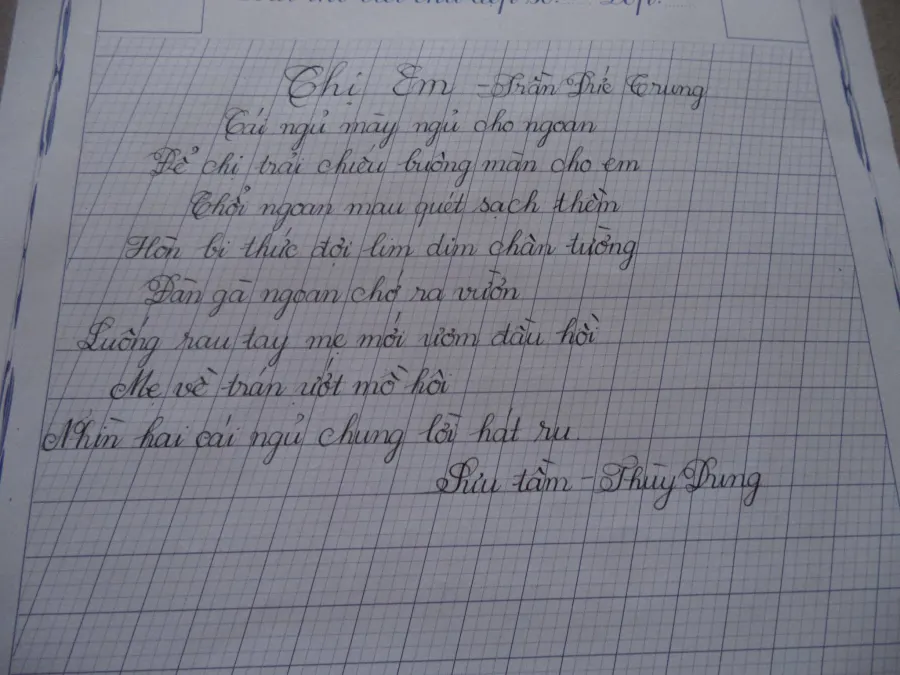 Chị Em - Trần Đức Trung
Cái ngủ mày ngủ cho ngoan
Để chị trải chiếu buông màn cho em
Chổi ngoan mau quét sạch thềm
Hòn bi thức đợi lim dim chân tường
Đàn gà ngoan chớ ra vườn
Luống rau tay mẹ mới ươm đầu hồi
Mẹ về trán ướt mồ hôi
Nhìn hai cái ngủ chung lời hát ru.
Sưu tầm - Thùy Dung